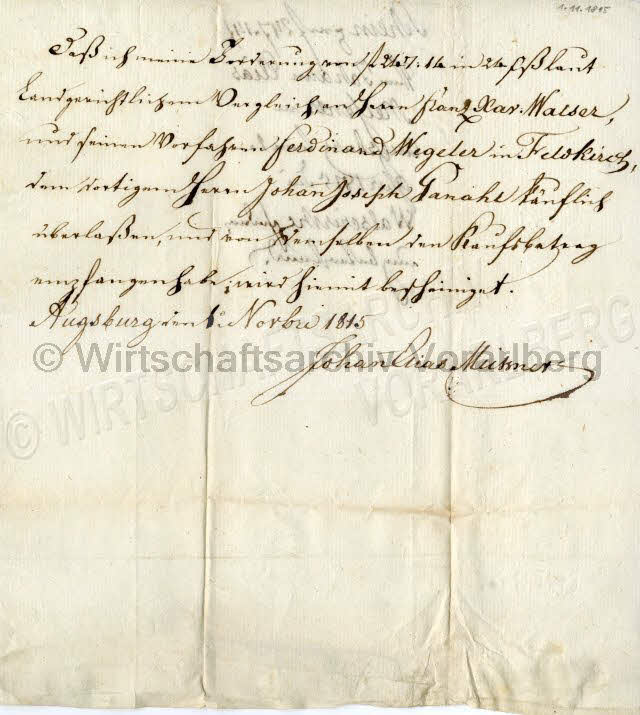 1.11.1815
Daß ich meine Forderung von f 247: 14 in 24 fß laut
Landgerichtlichem Vergleich, an Herrn Franz Xav. Walser,
und seinen Vorfahrn Ferdinand Wegeler in Feldkirch,
dem dortigem Herrn Johann Joseph Ganahl käuflich
überlaßen, und von demselben den Kaufsbetrag
empfangen habe; wird hiemit bescheiniget.
Augsburg den 1 Novbre 1815
© Wirtschaftsarchiv Vorarlberg
Johan Elias
© WIRTSCHAFTSARCHIV VORARLBERG